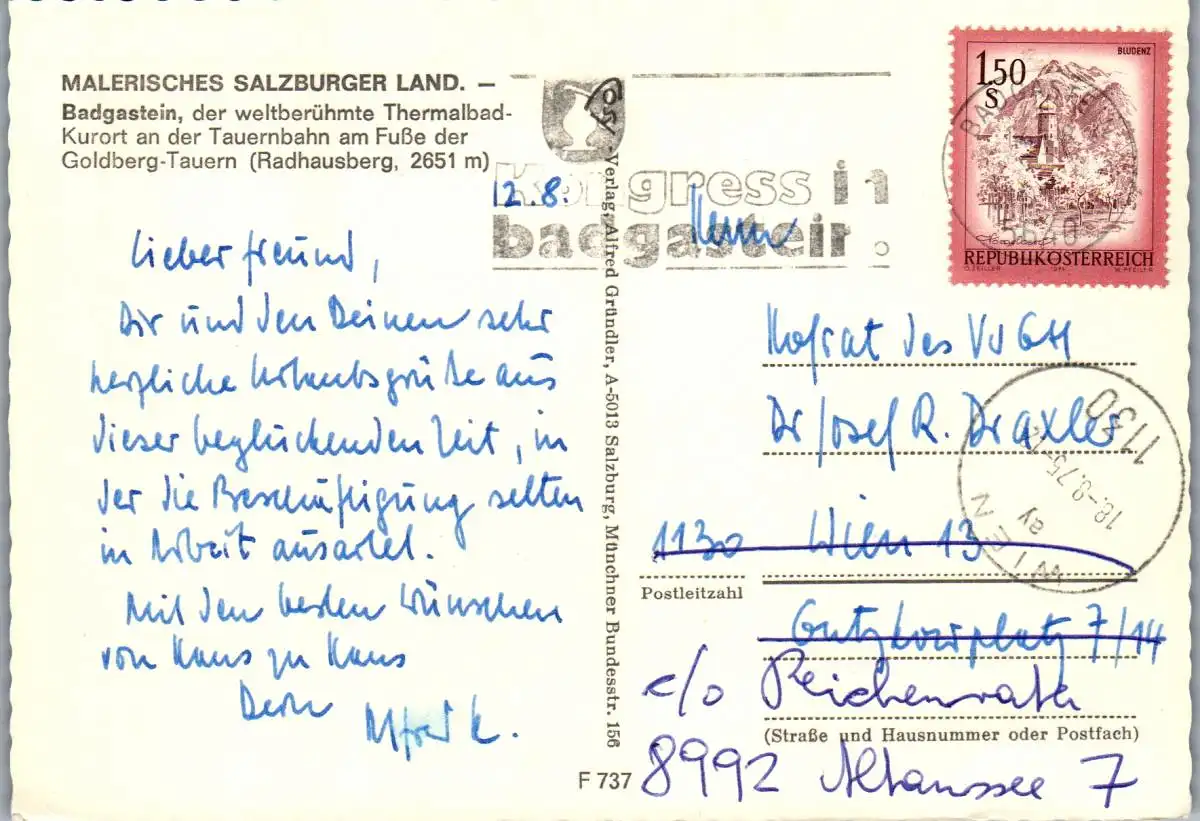 MALERISCHES SALZBURGER LAND. —
Badgastein, der weltberühmte Thermalbad-
Kurort an der Tauernbahn am Fuße der
Goldberg-Tauern (Radhausberg, 2651 m)
12.8.
Lieber Freund,
Dir und den Deinen sehr
herzliche Urlaubsgrüße aus
dieser beglückenden Zeit, in
der die Beschäftigung selten
in Arbeit ausartet.
Mit den besten Wünschen
von Haus zu Haus
Dein
Alfred K.
Verlag Alfred Gründler, A-5013 Salzburg, Münchner Bundesstr. 156
F 737
Kongress in
badgastein.
1,50
S
BLUDENZ
REPUBLIK ÖSTERREICH
O. ZEILLER
W. PFEILER
5640
Herrn
Hofrat des VwGH
Dr Josef R. Draxler
1130 Wien 13
Postleitzahl
Gutzkowplatz 7/14
c/o Reichenrath
(Straße und Hausnummer oder Postfach)
8992 Altaussee 7
1130
18.-8.75
ay
WIEN